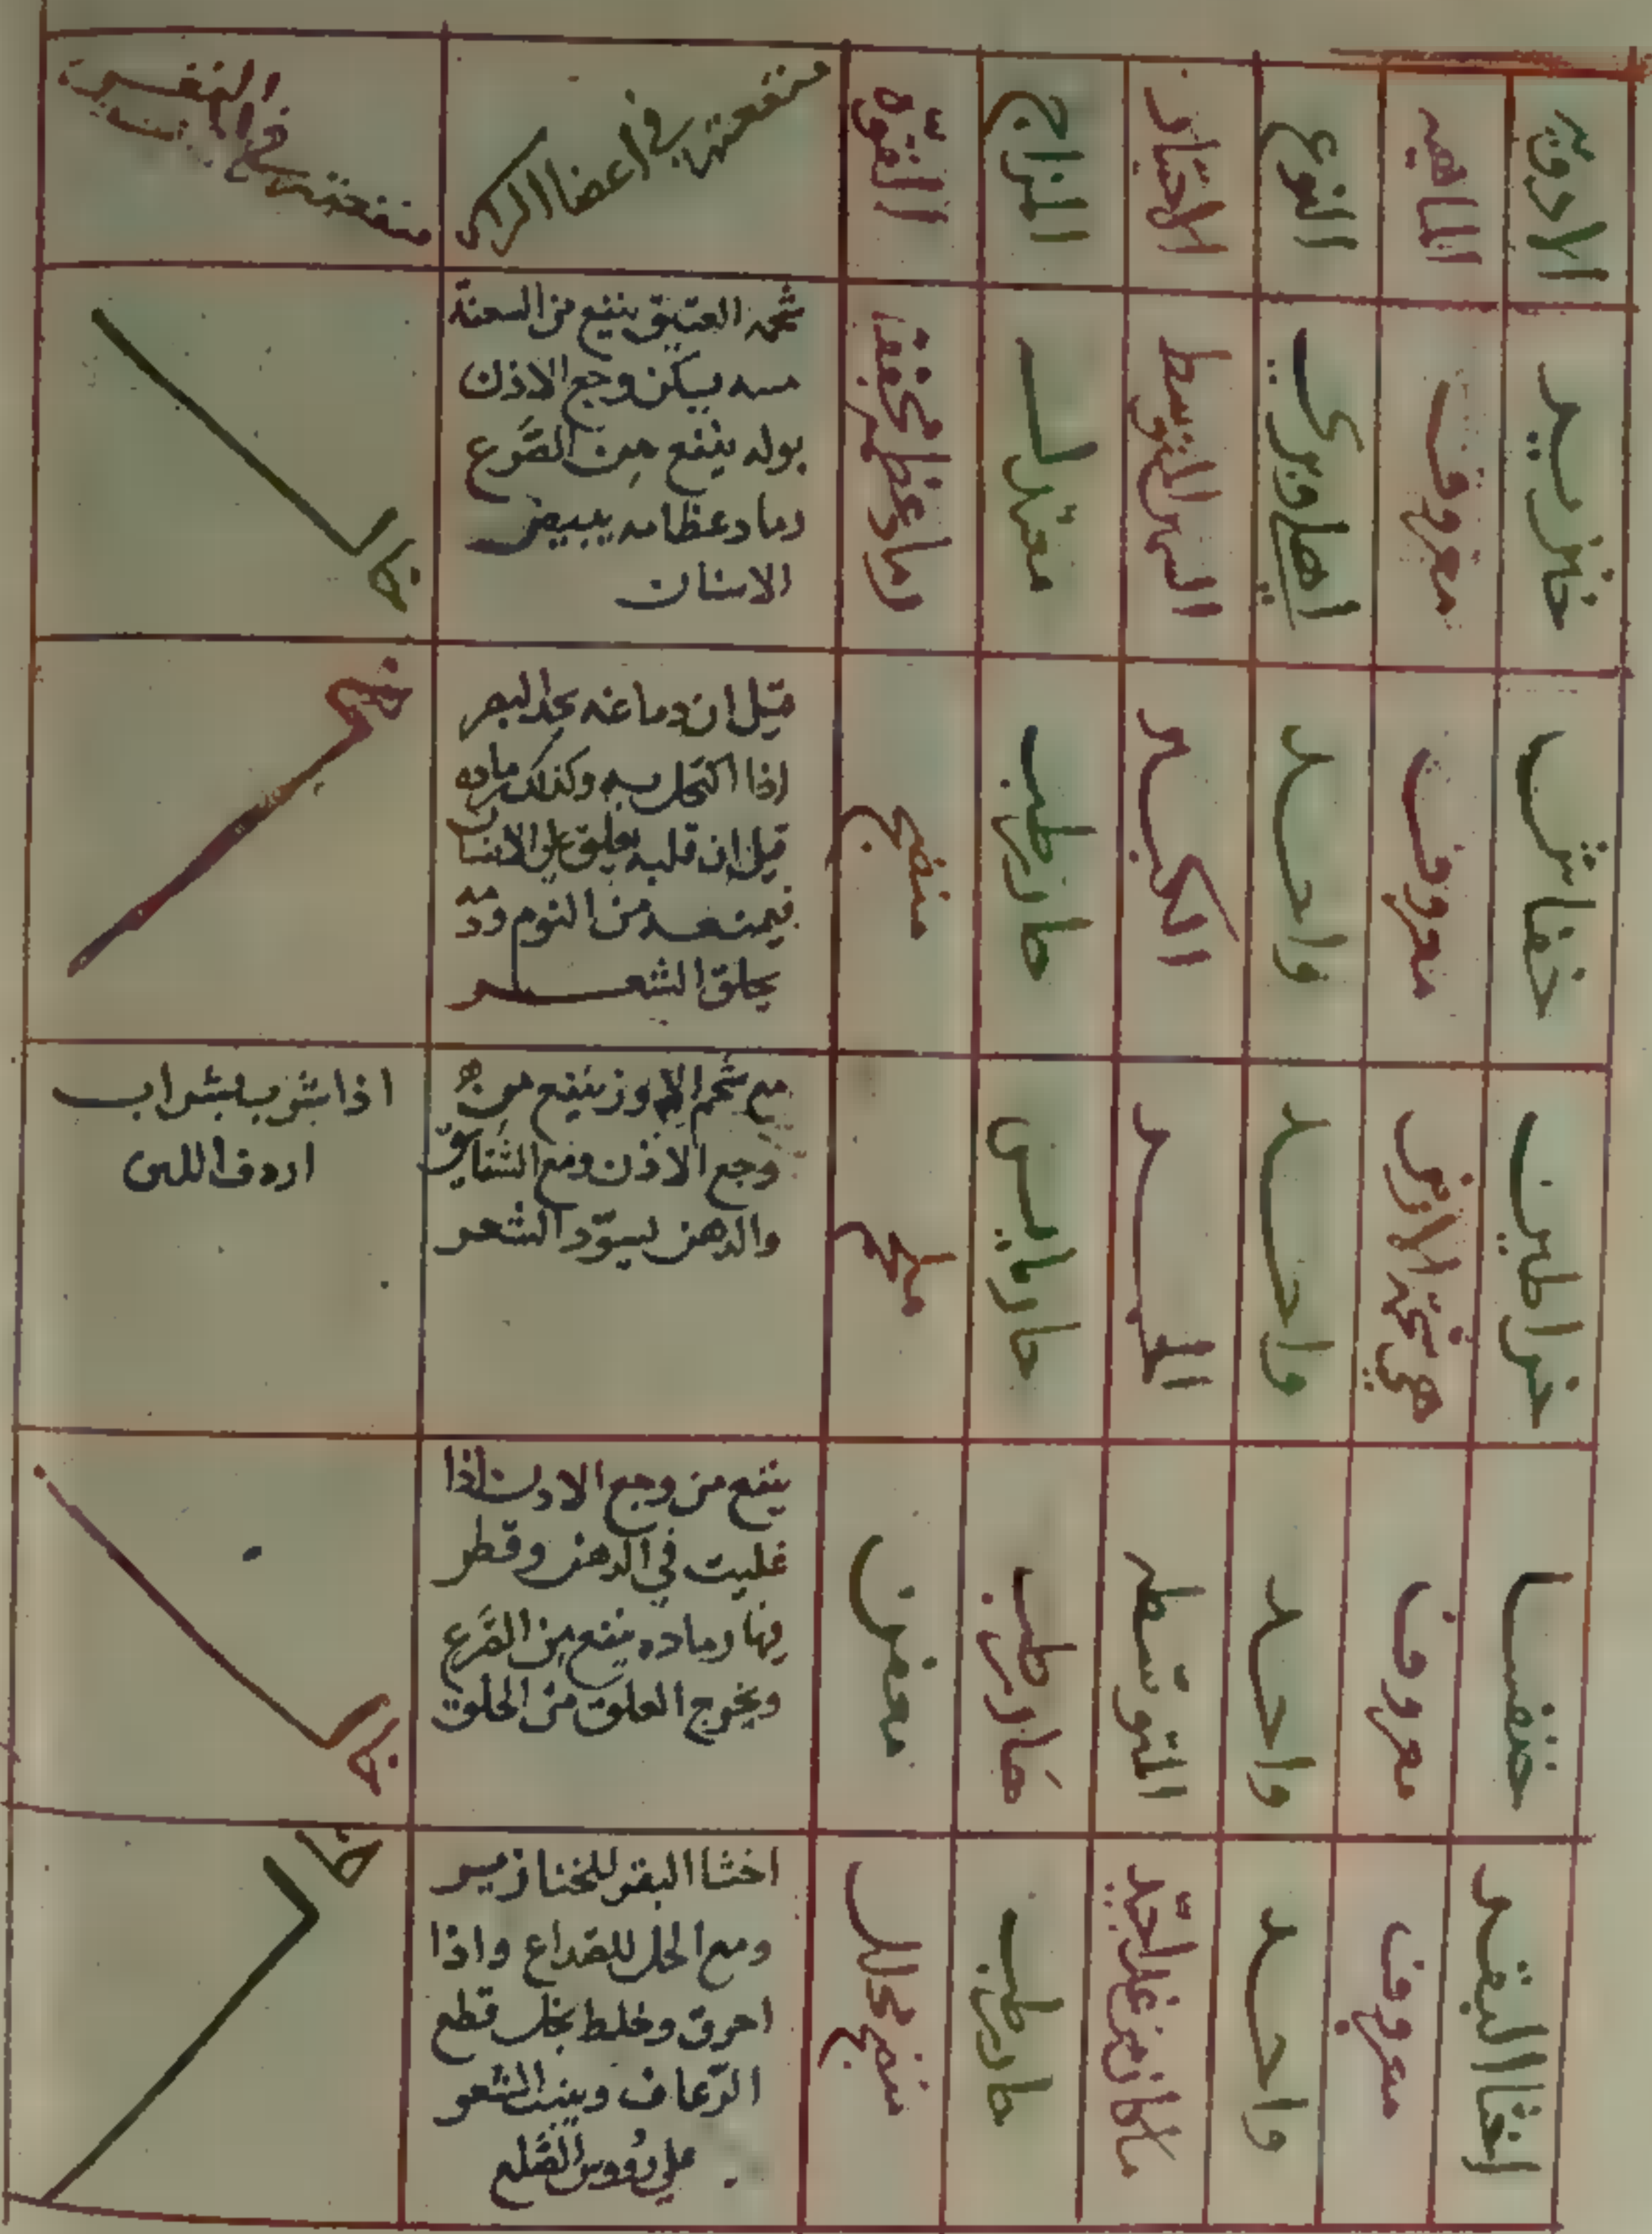 الادوية
الماهيه
النوع
الاختيار
المزاج
القوة
منفعته في اعضا الراس
منفعته في النفس
خنزير
معروف
اهلي وبري
السمين المتوسط
معتدل
رماد عظامه مجفف
شحمه العتيق ينفع من السعفة
يسكن وجع الاذن
بوله ينفع من الصرع
رماد عظامه يبيض
الاسنان
خال
خفاش
معروف
واحد
الكبير
حار رطب
منضج
قيل ان دماغه يحد البصر
اذا اكتحل به وكذلك رماده
قيل ان قلبه يعلق على الانسان
فيمنعه من النوم ودمه
يحلق الشعر
خال
خراطين
هي شحمة الارض
واحد
حار يابس
ملحم
مع شحم الاوز ينفع من
وجع الاذن ومع الشقايق
والدهن يسود الشعر
اذا شرب بشراب
ادر اللبن
خنفسا
معروف
واحد
المتوسطه
حار رطب
معفن
ينفع من وجع الاذن اذا
غليت في الدهن وقطر
فيها رماده ينفع من القرع
ويخرج العلق من الحلق
خال
اخثا البقر
معروف
واحد
ما كان من علف جيد
حار رطب
منضج محلل
اخثا البقر للخنازير
ومع الخل للصداع واذا
احرق وخلط بخل قطع
الرعاف وينبت الشعر
على رووس الصلع
خال